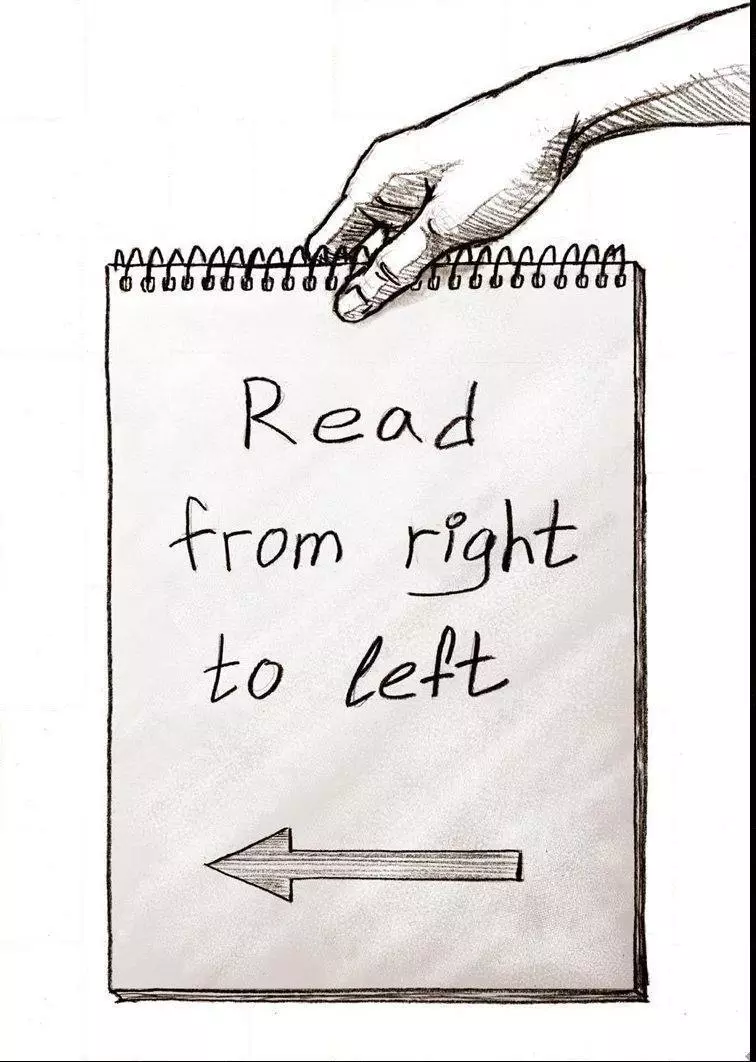 Read
from right
to left